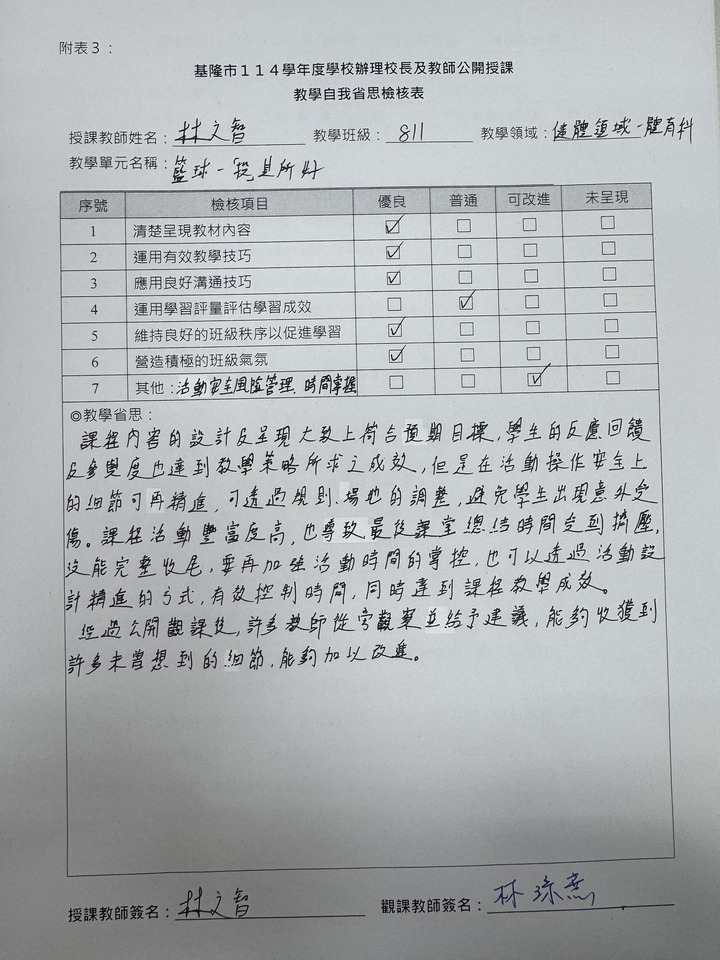 附表3：
基隆市114學年度學校辦理校長及教師公開授課
教學自我省思檢核表
授課教師姓名：林文智 教學班級：811 教學領域：健體領域-體育科
教學單元名稱：籃球-「投」其所好
序號 檢核項目 優良 普通 可改進 未呈現
1 清楚呈現教材內容 ☑ □ □ □
2 運用有效教學技巧 ☑ □ □ □
3 應用良好溝通技巧 ☑ □ □ □
4 運用學習評量評估學習成效 □ ☑ □ □
5 維持良好的班級秩序以促進學習 ☑ □ □ □
6 營造積極的班級氣氛 ☑ □ □ □
7 其他：活動安全風險管理、時間掌握 □ □ ☑ □
◎教學省思：
課程內容的設計及呈現大致上符合預期目標，學生的反應回饋
及參與度也達到教學策略所求之成效，但是在活動操作安全上
的細節可再精進，可透過規則、場地的調整，避免學生出現意外受
傷。課程活動豐富度高，也導致最後課堂總結時間受到擠壓，
沒能完整收尾，要再加強活動時間的掌控，也可以透過活動設
計精進的方式，有效控制時間，同時達到課程教學成效。
經過公開觀課後，許多教師從旁觀察並給予建議，能夠收獲到
許多未曾想到的細節，能夠加以改進。
授課教師簽名：林文智 觀課教師簽名：林